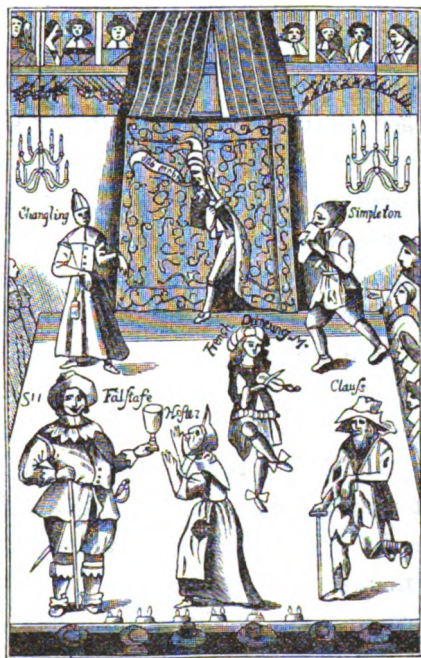 Changling
Simpleton
French Dancing Mr
Falſtafe
Clauſe